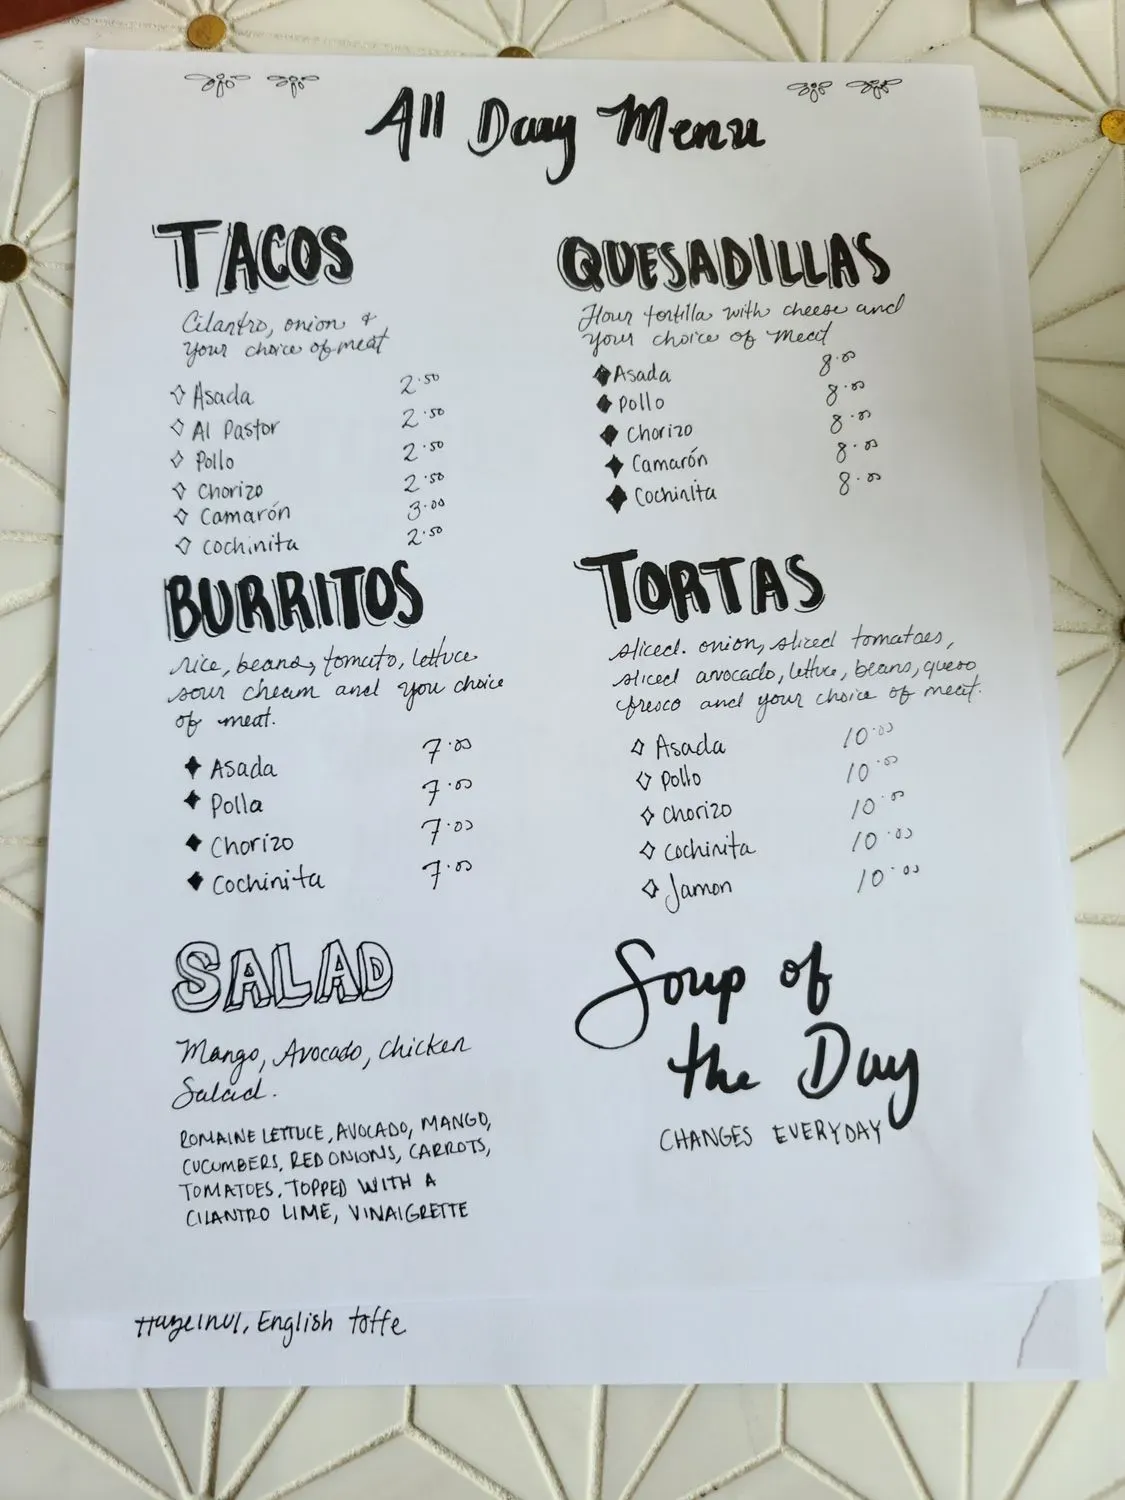 All Day Menu
TACOS
Cilantro, onion &
your choice of meat
Asada 2.50
Al Pastor 2.50
Pollo 2.50
Chorizo 2.50
Camarón 3.00
Cochinita 2.50
BURRITOS
rice, beans, tomato, lettuce
sour cheam and you choice
of meat.
Asada 7.00
Polla 7.00
Chorizo 7.00
Cochinita 7.00
SALAD
Mango, Avocado, Chicken
Salad.
ROMAINE LETTUCE, AVOCADO, MANGO,
CUCUMBERS, RED ONIONS, CARROTS,
TOMATOES, TOPPED WITH A
CILANTRO LIME, VINAIGRETTE
QUESADILLAS
Flour tortilla with cheese and
your choice of meat
Asada 8.00
Pollo 8.00
Chorizo 8.00
Camarón 8.00
Cochinita 8.00
TORTAS
sliced. onion, sliced tomatoes,
sliced avocado, lettuce, beans, queso
fresco and your choice of meat.
Asada 10.00
Pollo 10.00
Chorizo 10.00
Cochinita 10.00
Jamon 10.00
Soup of
the Day
CHANGES EVERYDAY
Hazelnut, English toffe